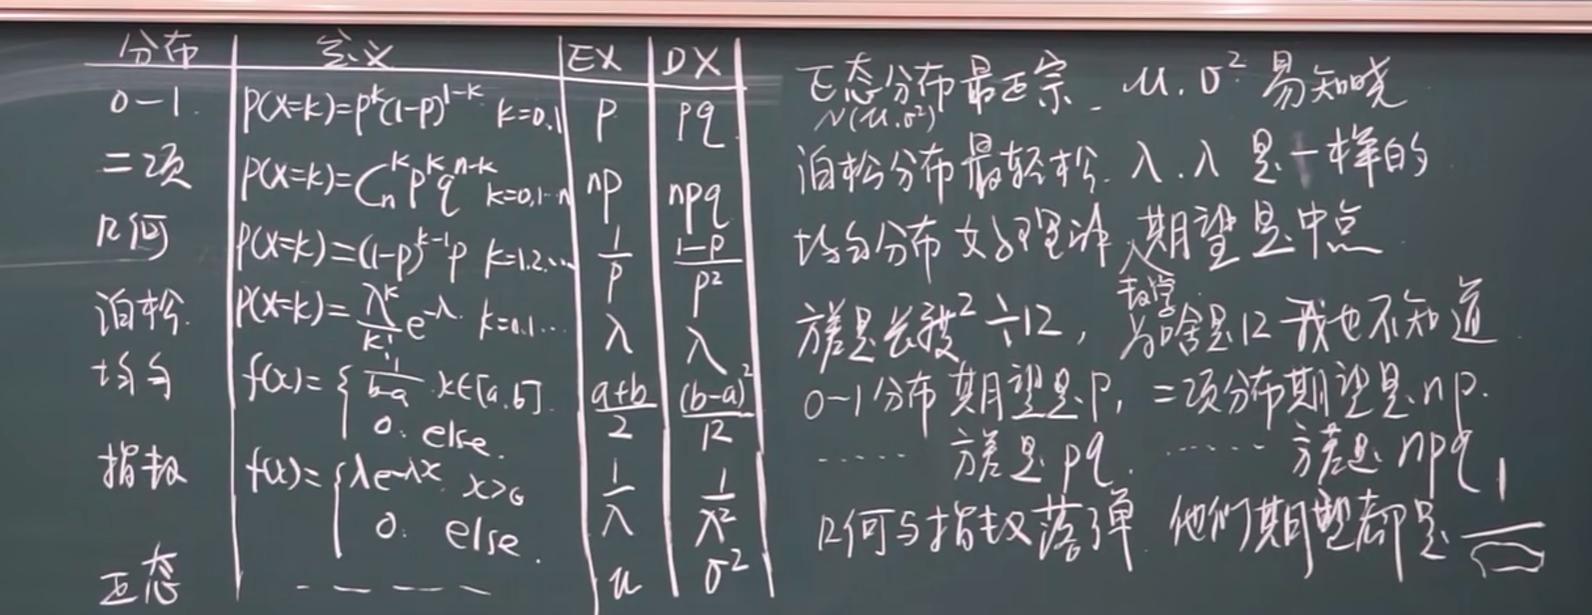 分布 定义 EX DX
0-1 P(X=k)=p^k(1-p)^{1-k} k=0,1 p pq
二项 P(X=k)=C_n^k p^k q^{n-k} k=0,1…n np npq
几何 P(X=k)=(1-p)^{k-1}p k=1.2.… 1/p (1-p)/p²
泊松 P(X=k)=λ^k/k! e^{-λ} k=0.1… λ λ
均匀 f(x)={1/(b-a) x∈[a,b] (a+b)/2 (b-a)²/12
0. else.
指数 f(x)={λe^{-λx} x>0 1/λ 1/λ²
0. else.
正态 ---- μ σ²
正态分布最正宗 μ.σ² 易知晓
N(μ.σ²)
泊松分布最轻松 λ.λ 是一样的
均匀分布 期望是中点
数学
方差是长度²÷12, 为啥是12 我也不知道
0-1分布期望是p, 二项分布期望是np.
…… 方差是pq. …… 方差是npq
几何与指数落单 他们期望都是 1/